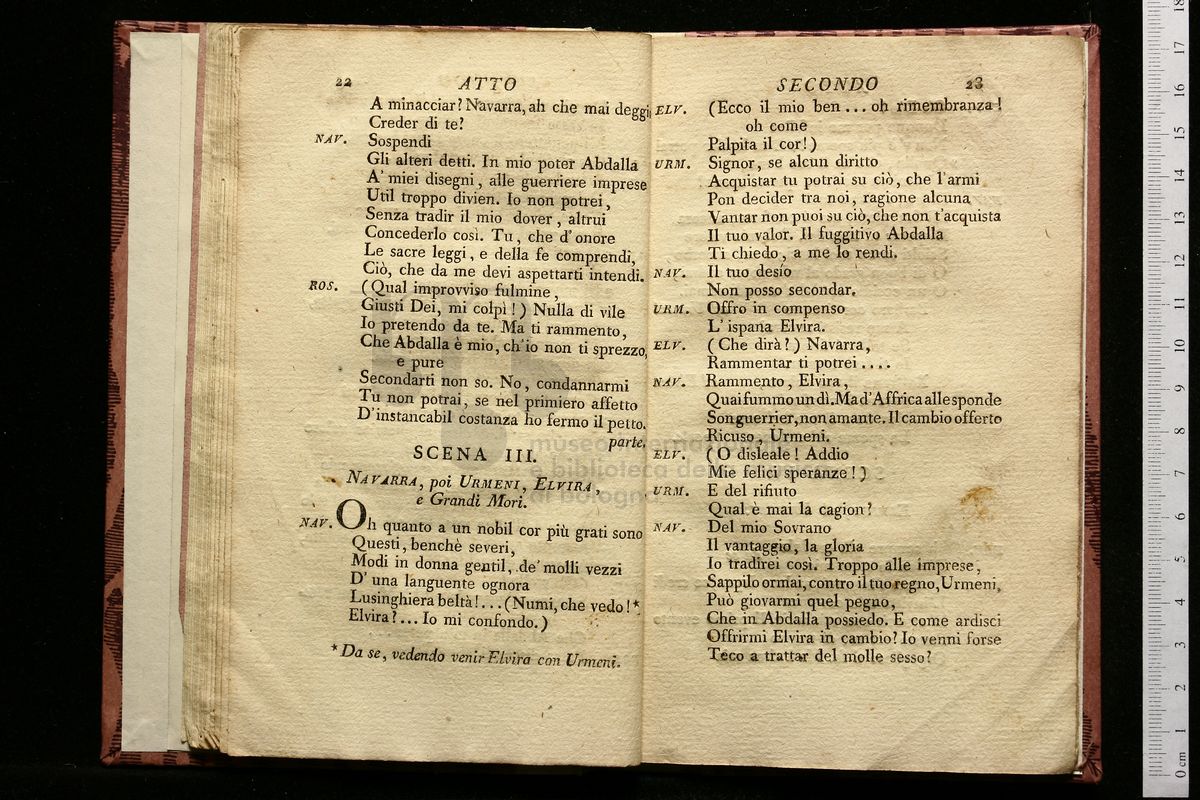 22 ATTO
A minacciar? Navarra, ah che mai deggi
Creder di te?
NAV. Sospendi
Gli alteri detti. In mio poter Abdalla
A' miei disegni, alle guerriere imprese
Util troppo divien. Io non potrei,
Senza tradir il mio dover, altrui
Concederlo così. Tu, che d'onore
Le sacre leggi, e della fe comprendi,
Ciò, che da me devi aspettarti intendi.
ROS. (Qual improvviso fulmine,
Giusti Dei, mi colpì!) Nulla di vile
Io pretendo da te. Ma ti rammento,
Che Abdalla è mio, ch'io non ti sprezzo,
e pure
Secondarti non so. No, condannarmi
Tu non potrai, se nel primiero affetto
D'instancabil costanza ho fermo il petto.
parte.
SCENA III.
NAVARRA, poi URMENI, ELVIRA,
e Grandi Mori.
NAV. Oh quanto a un nobil cor più grati sono
Questi, benchè severi,
Modi in donna gentil, de' molli vezzi
D' una languente ognora
Lusinghiera beltà!... (Numi, che vedo!*
Elvira?... Io mi confondo.)
* Da se, vedendo venir Elvira con Urmeni.
SECONDO 23
ELV. (Ecco il mio ben... oh rimembranza!
oh come
Palpita il cor!)
URM. Signor, se alcun diritto
Acquistar tu potrai su ciò, che l'armi
Pon decider tra noi, ragione alcuna
Vantar non puoi su ciò, che non t'acquista
Il tuo valor. Il fuggitivo Abdalla
Ti chiedo, a me lo rendi.
NAV. Il tuo desío
Non posso secondar.
URM. Offro in compenso
L' ispana Elvira.
ELV. (Che dirà?) Navarra,
Rammentar ti potrei....
NAV. Rammento, Elvira,
Quai fummo un dì. Ma d'Affrica alle sponde
Son guerrier, non amante. Il cambio offerto
Ricuso, Urmeni.
ELV. (O disleale! Addio
Mie felici speranze!)
URM. E del rifiuto
Qual è mai la cagion?
NAV. Del mio Sovrano
Il vantaggio, la gloria
Io tradirei così. Troppo alle imprese,
Sappilo ormai, contro il tuo regno, Urmeni,
Può giovarmi quel pegno,
Che in Abdalla possiedo. E come ardisci
Offrirmi Elvira in cambio? Io venni forse
Teco a trattar del molle sesso?